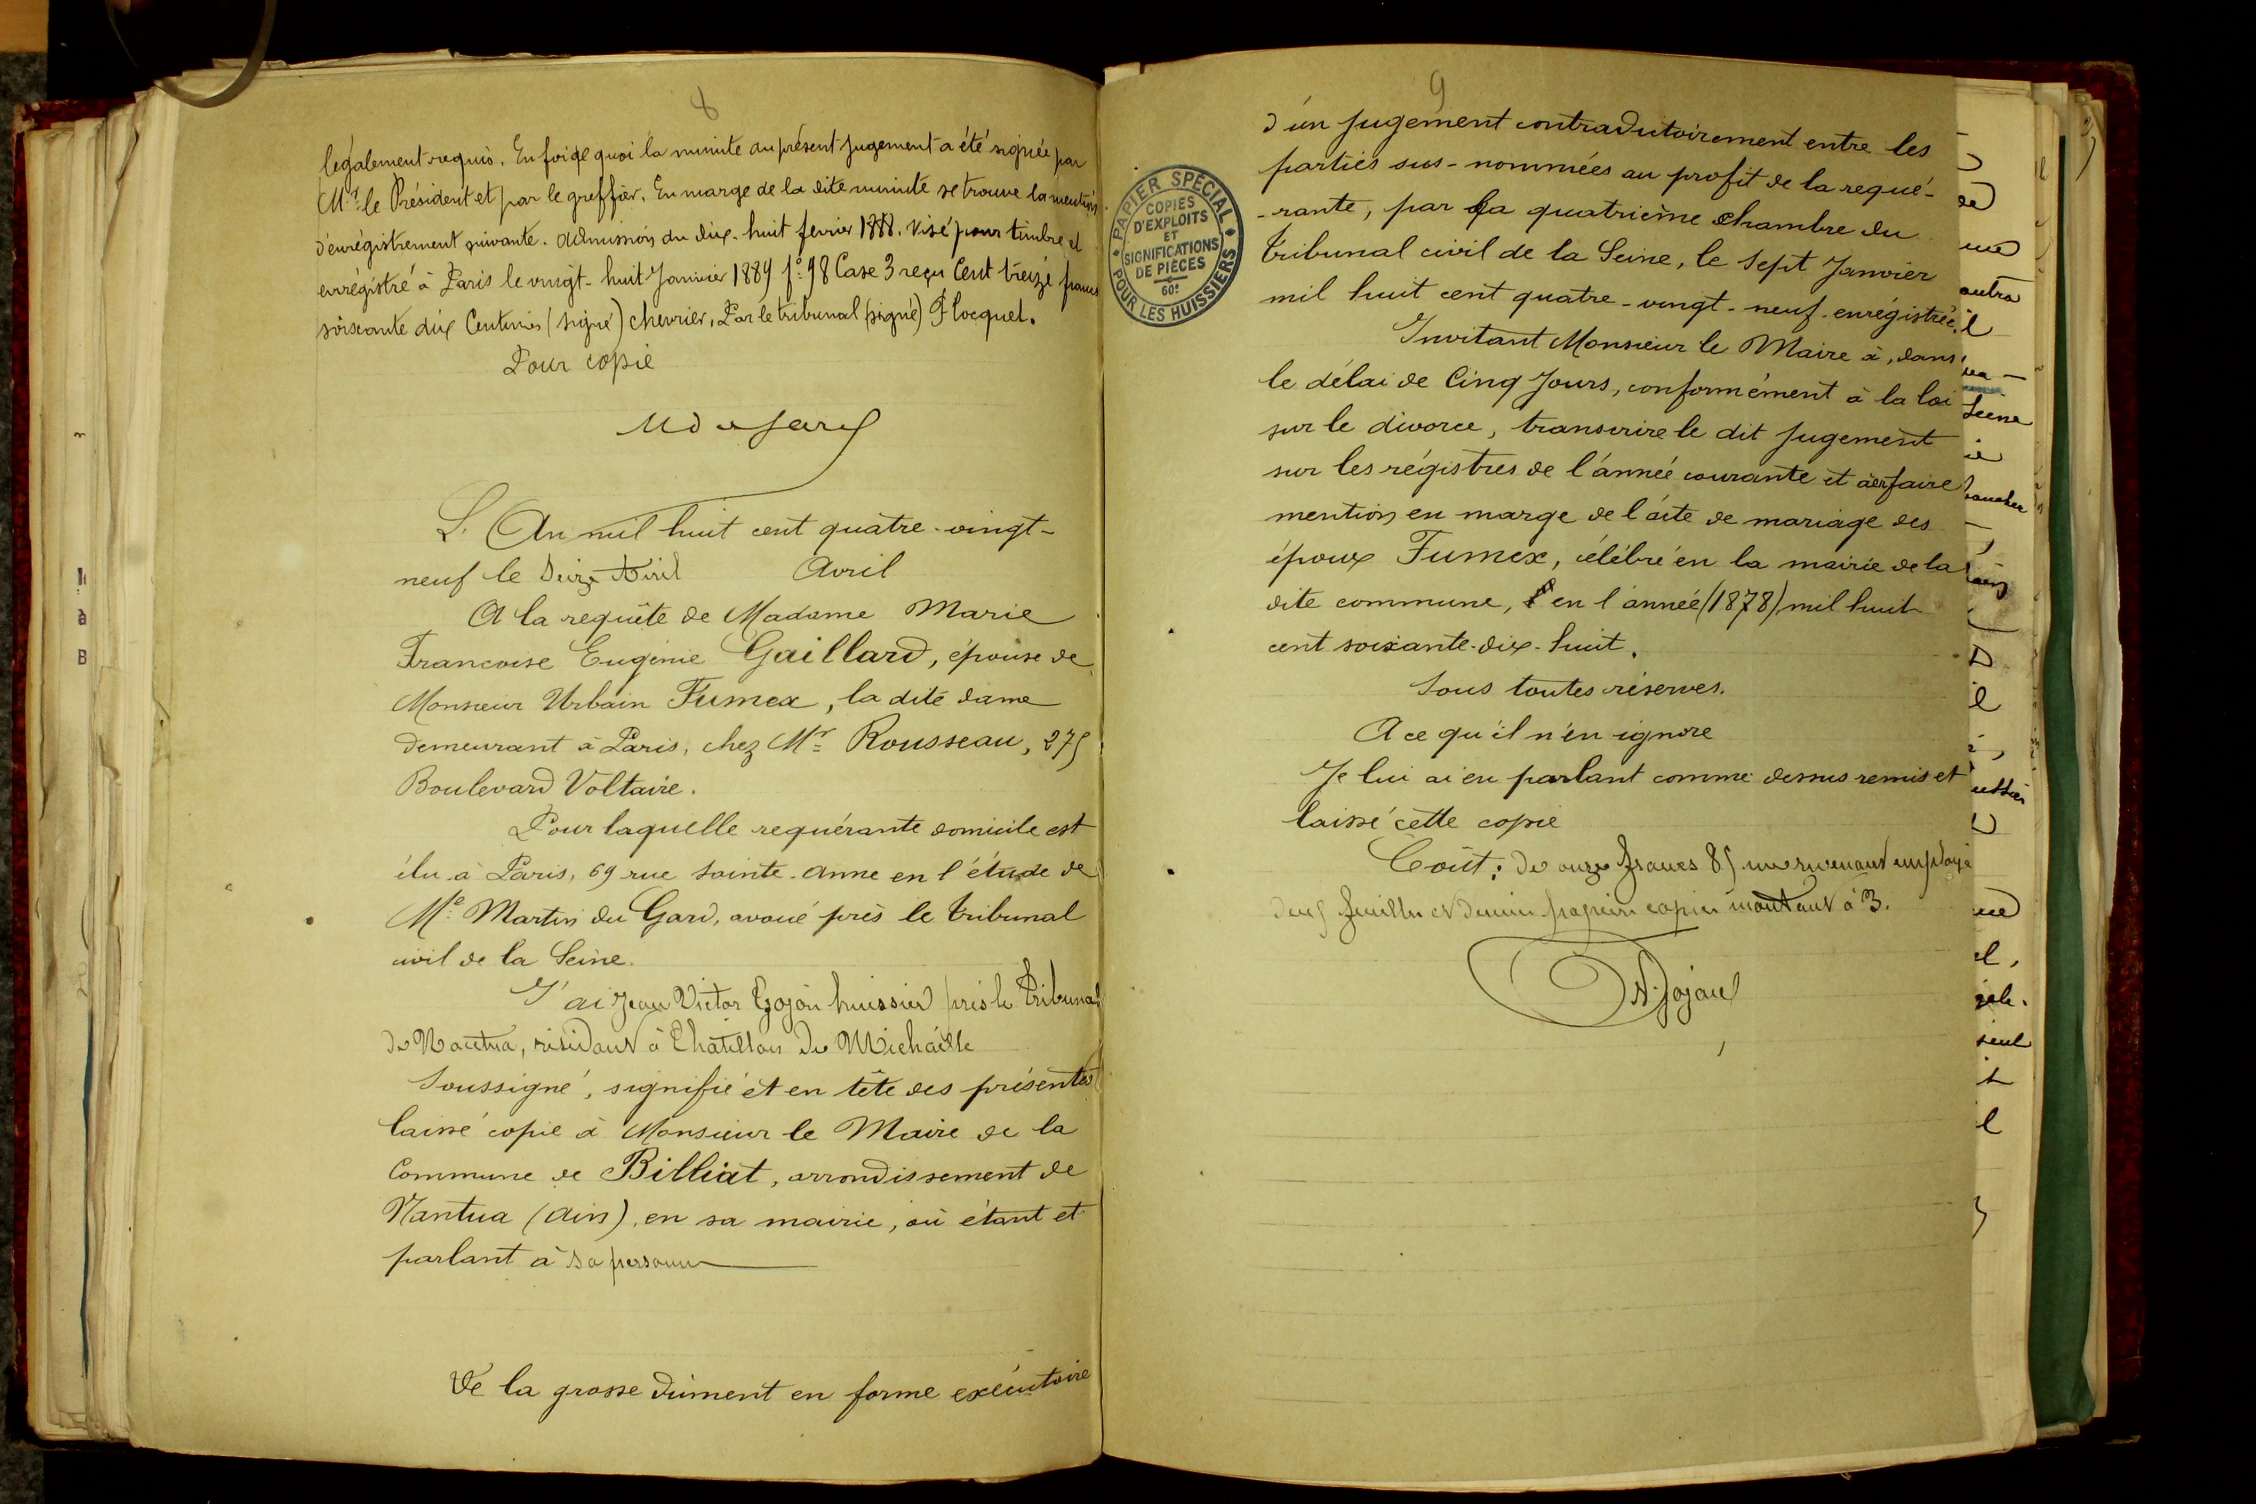 8
légalement requis. En foi de quoi la minute du présent jugement a été signée par
Mr. le Président et par le greffier. En marge de la dite minute se trouve la mention
d'enrégistrement suivante. Admission du dix-huit fevrier 1888. Visé pour timbre et
enrégistré à Paris le vingt-huit Janvier 1889 f° 98 Case 3 reçu Cent treize francs
soixante dix Centimes (signé) chevrier, Par le tribunal (signé) Flocquet.
Pour copie
L'An mil huit cent quatre-vingt-
neuf le Seize Avril Avril
A la requête de Madame Marie
Francoise Eugénie Gaillard, épouse de
Monsieur Urbain Fumex, la dite dame
demeurant à Paris, chez Mr Rousseau, 275
Boulevard Voltaire.
Pour laquelle requérante domicile est
élu à Paris, 69 rue Sainte-Anne en l'étude de
Me Martin du Gard, avoué près le tribunal
civil de la Seine.
J'ai Jean Victor Gojon huissier près le Tribunal
de Nantua, résidant à Châtillon de Michaille
Soussigné, signifié et en tête des présentes
laissé copie à Monsieur le Maire de la
Commune de Billiat, arrondissement de
Nantua (Ain), en sa mairie, où étant et
parlant à sa personne
De la grosse dûment en forme exécutoire
9
d'un jugement contradutoirement entre les
parties sus-nommées au profit de la requé-
-rante, par la quatrième chambre du
tribunal civil de la Seine, le Sept Janvier
mil huit cent quatre-vingt-neuf enrégistrée.
Invitant Monsieur le Maire à, dans
le délai de Cinq Jours, conformément à la loi
sur le divorce, transcrire le dit jugement
sur les régistres de l'année courante et à en faire
mention en marge de l'acte de mariage des
époux Fumex, célébré en la mairie de la
dite commune, en l'année (1878) mil huit
cent soixante-dix-huit.
Sous toutes réserves.
A ce qu'il n'en ignore
Je lui ai en parlant comme dessus remis et
laissé cette copie
Coût: de onze francs 85 employé
deux feuilles et demie papier copies montant à 3.
PAPIER SPÉCIAL
COPIES
D'EXPLOITS
ET
SIGNIFICATIONS
DE PIÈCES
60c
POUR LES HUISSIERS